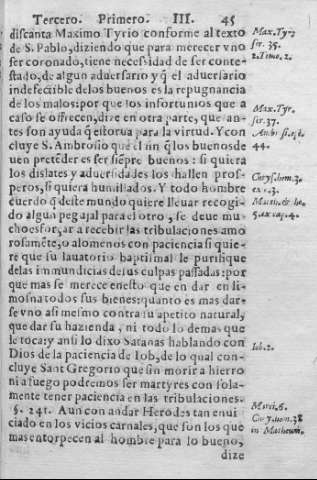 Tercero. Primero. III. 45
discanta Maximo Tyrio conforme al texto
de S. Pablo, diziendo que para merecer vno
ser coronado, tiene necessidad de ser conte-
stado, de algun aduersario y q̃ el aduersario
indefecible de los buenos es la repugnancia
de los malos: por que los infortunios que a
caso se offrecen, dize en otra parte, que an-
tes son ayuda q̃ estorua para la virtud. Y con
cluye S. Ambrosio que el fin q̃ los buenos de
uen pretẽder es ser siẽpre buenos: si quiera
los dislates y aduersidades los hallen pros-
peros, si quiera humillados. Y todo hombre
cuerdo q̃ deste mundo quiere lleuar recogi-
do algun pegajal para el otro, se deue mu-
cho esforçar a recebir las tribulaciones amo
rosamẽte, o alomenos con paciencia si quie-
re que su lauatorio baptismal le purifique
de las immundicias de sus culpas passadas: por
que mas se merece en esto que en dar en li-
mosna todos sus bienes: quanto es mas dar-
se vno asi mesmo contra su apetito natural,
que dar su hazienda, ni todo lo demas que
le toca: y ansi lo dixo Satanas hablando con
Dios de la paciencia de Iob, de lo qual con-
cluye Sant Gregorio que sin morir a hierro
ni a fuego podremos ser martyres con sola-
mente tener paciencia en las tribulaciones.
§. 241. Aun con andar Herodes tan enui
ciado en los vicios carnales, que son los que
mas entorpecen al hombre para lo bueno,
dize
Max. Tyr.
ser. 35.
2. Timo. 2.
Max. Tyr.
ser. 37.
44.
Chrys. hom. 3.
Math. &
5. ex cap. 4.
Iob. 2.
Marci. 6.
in Matheum.